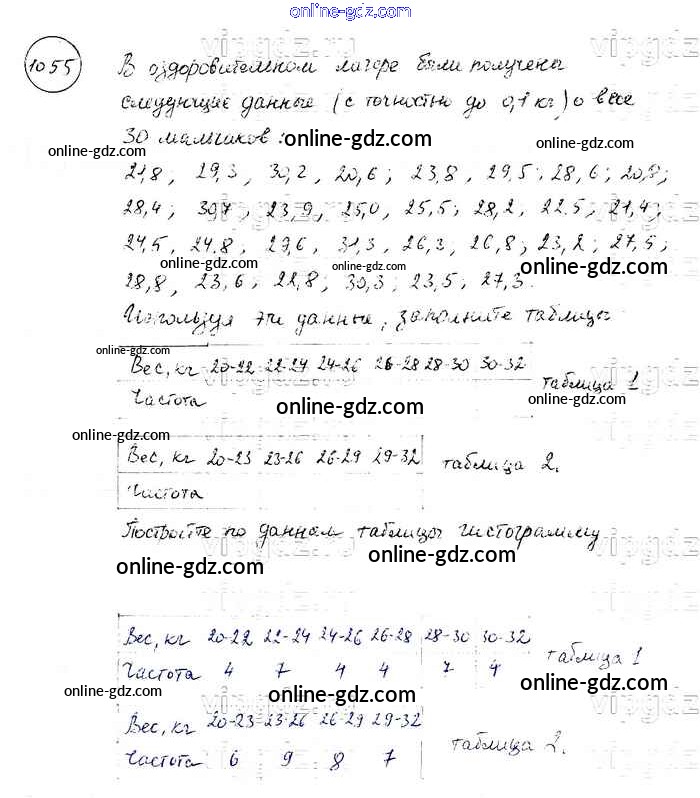 online-gdz.com
1055
В оздоровительном лагере были получены
следующие данные (с точностью до 0,1 кг) о весе
30 мальчиков:
online-gdz.com
online-gdz.com
online-gdz.com
21,8, 29,3, 30,2, 20,6; 23,8, 29,5; 28,6; 20,8;
28,4; 30,7, 23,9, 25,0, 25,5; 28,2, 22,5, 21,4;
24,5, 24,8, 29,6, 31,3, 26,3, 26,8; 23,2; 27,5;
online-gdz.com
online-gdz.com
online-gdz.com
28,8, 23,6; 22,8; 30,3; 23,5; 27,3.
Используя эти данные, заполните таблицы
online-gdz.com
Вес, кг 20-22 22-24 24-26 26-28 28-30 30-32
Частота
таблица 1
online-gdz.com
online-gdz.com
Вес, кг 20-23 23-26 26-29 29-32 таблица 2.
Частота
Постройте по данном таблицы гистограмму
online-gdz.com
online-gdz.com
Вес, кг 20-22 22-24 24-26 26-28 28-30 30-32
Частота 4 7 4 4 7 4
таблица 1
online-gdz.com
online-gdz.com
Вес, кг 20-23 23-26 26-29 29-32
Частота 6 9 8 7
таблица 2.
online-gdz.com
online-gdz.com